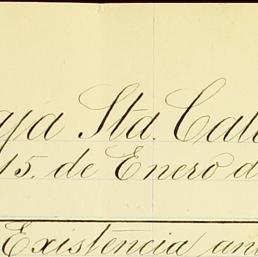 aja Sta. Cata
15. de Enero d
Existencia an